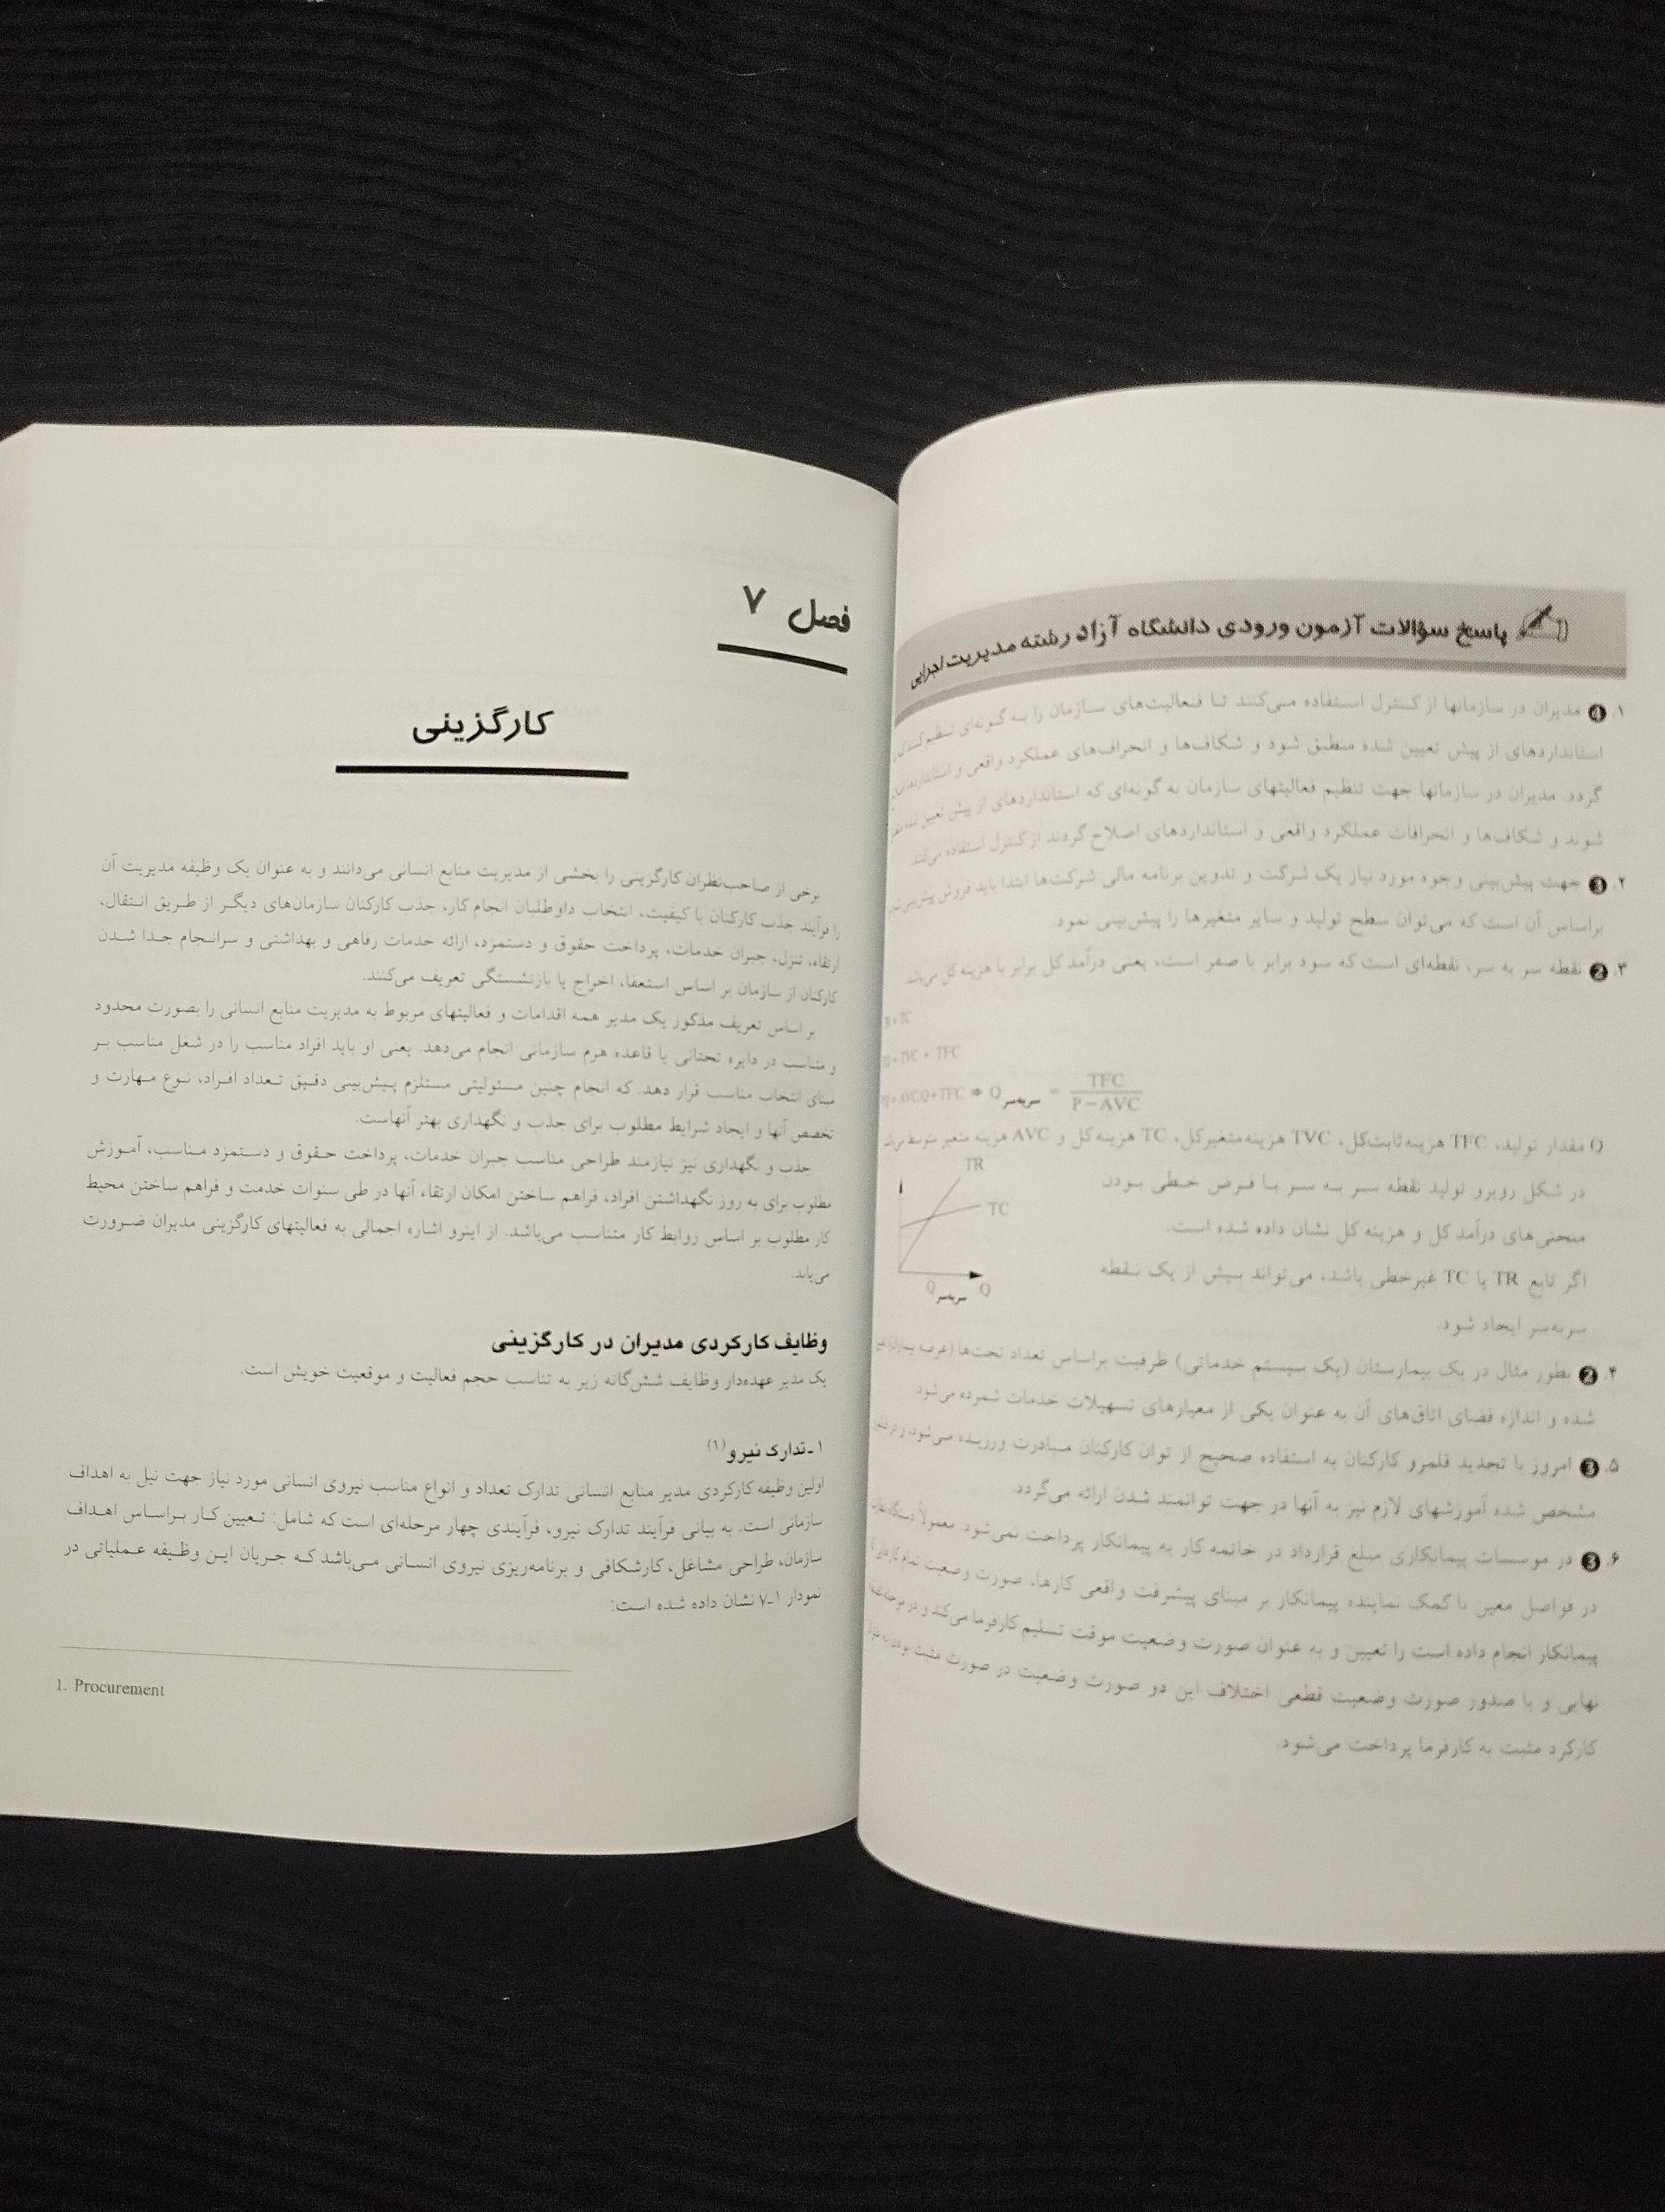 پاسخ سؤالات آزمون ورودی دانشگاه آزاد رشته مدیریت اجرایی
۱. ❹ مدیران در سازمانها از کنترل استفاده می‌کنند تا فعالیت‌های سازمان را به گونه‌ای تنظیم کنند که
استانداردهای از پیش تعیین شده منطبق شود و شکاف‌ها و انحراف‌های عملکرد واقعی و استانداردها
گردد. مدیران در سازمانها جهت تنظیم فعالیتهای سازمان به گونه‌ای که استانداردهای از پیش تعیین شده
شوند و شکاف‌ها و انحرافات عملکرد واقعی و استانداردهای اصلاح گردند از کنترل استفاده می‌کنند
۲. ❸ جهت پیش‌بینی وجوه مورد نیاز یک شرکت و تدوین برنامه مالی شرکت‌ها ابتدا باید فروش پیش‌بینی شود
براساس آن است که می‌توان سطح تولید و سایر متغیرها را پیش‌بینی نمود.
۳. ❷ نقطه سر به سر، نقطه‌ای است که سود برابر با صفر است، یعنی درآمد کل برابر با هزینه کل می‌باشد
= TC
= TVC + TFC
= AVC.Q + TFC ⇒ Q سربه‌سر = TFC / P − AVC
Q مقدار تولید، TFC هزینه ثابت‌کل، TVC هزینه متغیرکل، TC هزینه کل و AVC هزینه متغیر متوسط
TR
TC
Q سربه‌سر Q
در شکل روبرو تولید نقطه سر به سر با فرض خطی بودن
منحنی‌های درآمد کل و هزینه کل نشان داده شده است.
اگر تابع TR یا TC غیرخطی باشد، می‌تواند بیش از یک نقطه
سربه‌سر ایجاد شود.
۴. ❷ بطور مثال در یک بیمارستان (یک سیستم خدماتی) ظرفیت براساس تعداد تخت‌ها (عرضه
شده و اندازه فضای اتاق‌های آن به عنوان یکی از معیارهای تسهیلات خدمات شمرده می‌شود.
۵. ❸ امروز با تحدید قلمرو کارکنان به استفاده صحیح از توان کارکنان مبادرت ورزیده می‌شود، و در
مشخص شده آموزشهای لازم نیز به آنها در جهت توانمند شدن ارائه می‌گردد.
۶. ❸ در موسسات پیمانکاری مبلغ قرارداد در خاتمه کار به پیمانکار پرداخت نمی‌شود. معمولاً
در فواصل معین با کمک نماینده پیمانکار بر مبنای پیشرفت واقعی کارها، صورت وضعیت تمام
پیمانکار انجام داده است را تعیین و به عنوان صورت وضعیت موقت تسلیم کارفرما می‌کند و در مرحله
نهایی و با صدور صورت وضعیت قطعی اختلاف این دو صورت وضعیت در صورت مثبت بودن
کارکرد مثبت به کارفرما پرداخت می‌شود.
فصل ۷
کارگزینی
برخی از صاحب‌نظران کارگزینی را بخشی از مدیریت منابع انسانی می‌دانند و به عنوان یک وظیفه مدیریت آن
را فرآیند جذب کارکنان با کیفیت، انتخاب داوطلبان انجام کار، جذب کارکنان سازمان‌های دیگر از طریق انتقال،
ارتقاء، تنزل، جبران خدمات، پرداخت حقوق و دستمزد، ارائه خدمات رفاهی و بهداشتی و سرانجام جدا شدن
کارکنان از سازمان بر اساس استعفا، اخراج یا بازنشستگی تعریف می‌کنند.
بر اساس تعریف مذکور یک مدیر همه اقدامات و فعالیتهای مربوط به مدیریت منابع انسانی را بصورت محدود
و متناسب در دایره تحتانی یا قاعده هرم سازمانی انجام می‌دهد. یعنی او باید افراد مناسب را در شغل مناسب بر
مبنای انتخاب مناسب قرار دهد. که انجام چنین مسئولیتی مستلزم پیش‌بینی دقیق تعداد افراد، نوع مهارت و
تخصص آنها و ایجاد شرایط مطلوب برای جذب و نگهداری بهتر آنهاست.
جذب و نگهداری نیز نیازمند طراحی مناسب جبران خدمات، پرداخت حقوق و دستمزد مناسب، آموزش
مطلوب برای به روز نگهداشتن افراد، فراهم ساختن امکان ارتقاء آنها در طی سنوات خدمت و فراهم ساختن محیط
کار مطلوب بر اساس روابط کار متناسب می‌باشد. از اینرو اشاره اجمالی به فعالیتهای کارگزینی مدیران ضرورت
می‌یابد.
وظایف کارکردی مدیران در کارگزینی
یک مدیر عهده‌دار وظایف شش‌گانه زیر به تناسب حجم فعالیت و موقعیت خویش است.
۱-تدارک نیرو(۱)
اولین وظیفه کارکردی مدیر منابع انسانی تدارک تعداد و انواع مناسب نیروی انسانی مورد نیاز جهت نیل به اهداف
سازمانی است. به بیانی فرآیند تدارک نیرو، فرآیندی چهار مرحله‌ای است که شامل: تعیین کار براساس اهداف
سازمان، طراحی مشاغل، کارشکافی و برنامه‌ریزی نیروی انسانی می‌باشد که جریان این وظیفه عملیاتی در
نمودار ۱-۷ نشان داده شده است:
1. Procurement